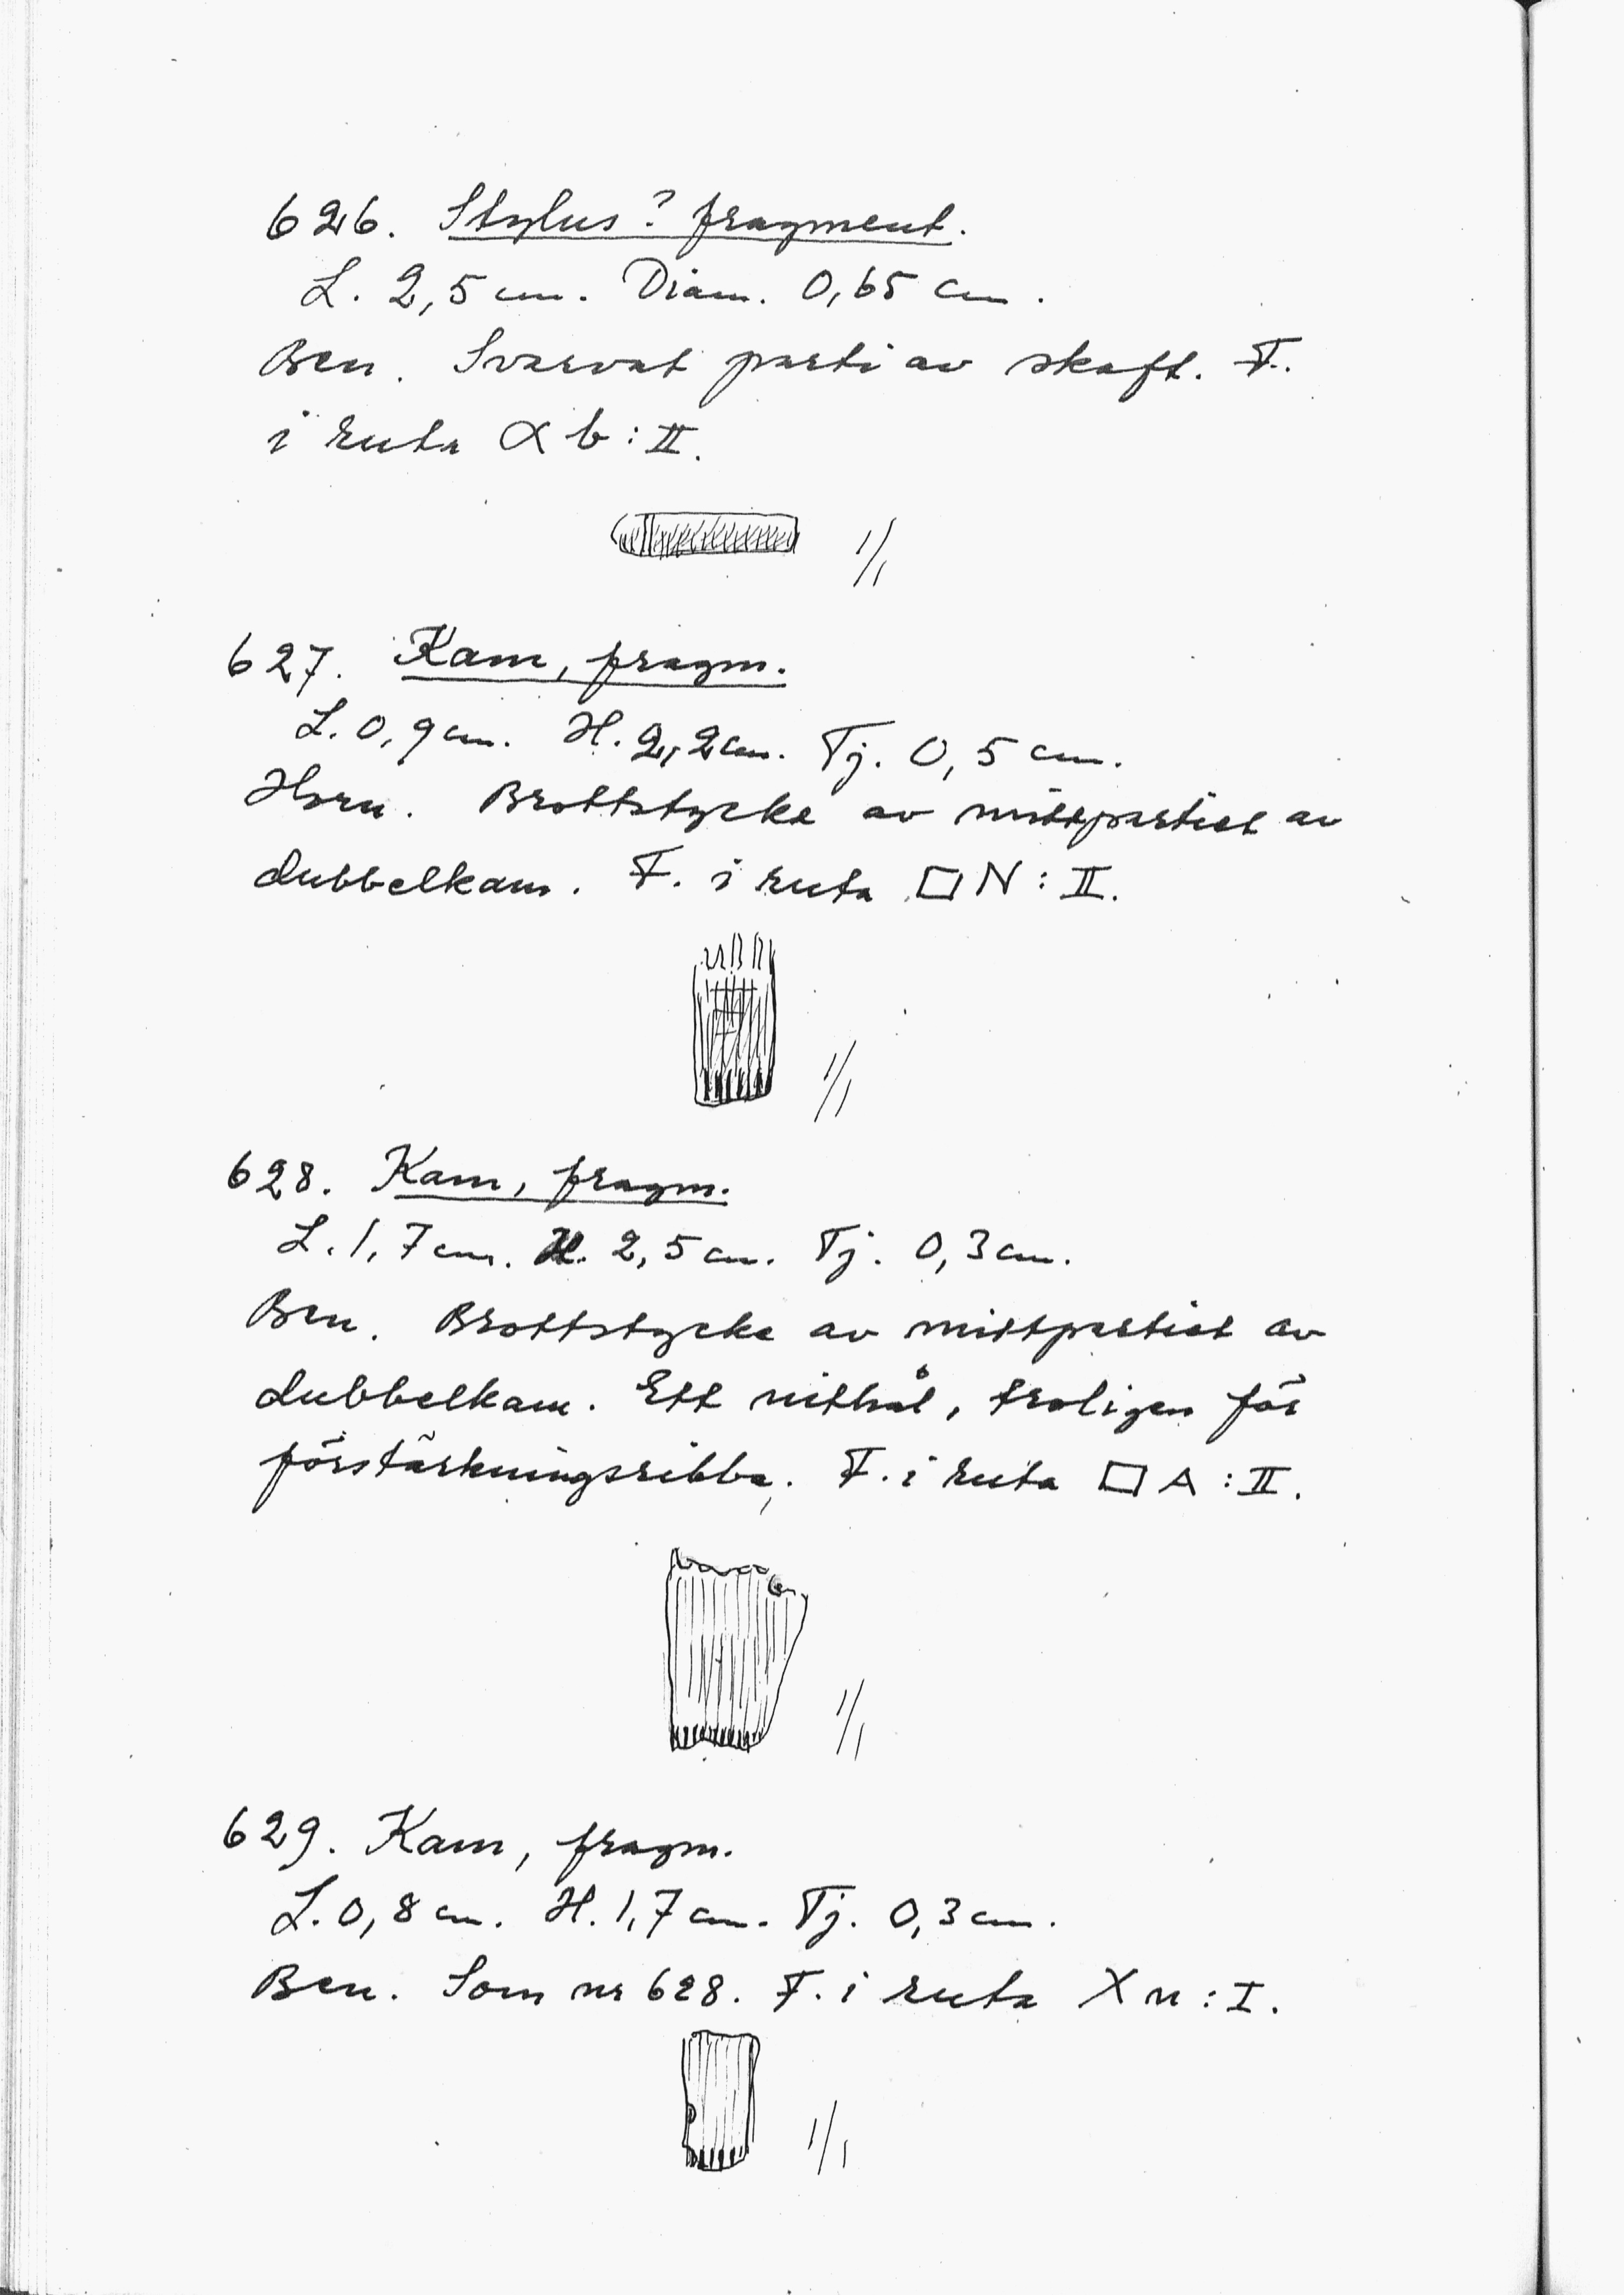 626. Stylus? fragment.
L. 2,5 cm. Diam. 0,65 cm.
Ben. Svarvat parti av skaft. F.
i ruta α b : II.
1/1
627. Kam, fragm.
L. 0,9 cm. H. 2,2 cm. Tj. 0,5 cm.
Horn. Brottstycke av mittpartiet av
dubbelkam. F. i ruta □ N : II.
1/1
628. Kam, fragm.
L. 1,7 cm. H. 2,5 cm. Tj. 0,3 cm.
Ben. Brottstycke av mittpartiet av
dubbelkam. Ett nithål, troligen för
förstärkningsribba. F. i ruta □ A : II.
1/1
629. Kam, fragm.
L. 0,8 cm. H. 1,7 cm. Tj. 0,3 cm.
Ben. Som nr 628. F. i ruta X n : I.
1/1